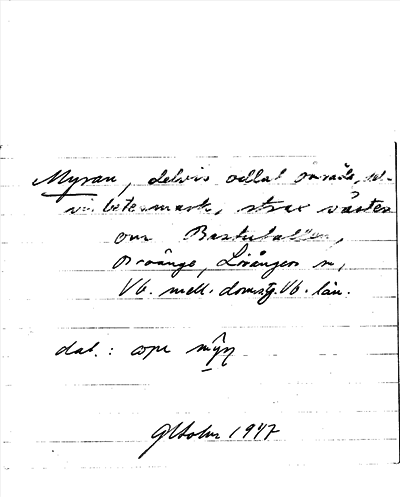 Myran, delvis odlat område, del-
vis betesmark, strax väster
om Bastubacken,
Lövångers sn,
Vb. mell. domsg. Vb. län.
dat.: opå myṇ
1947